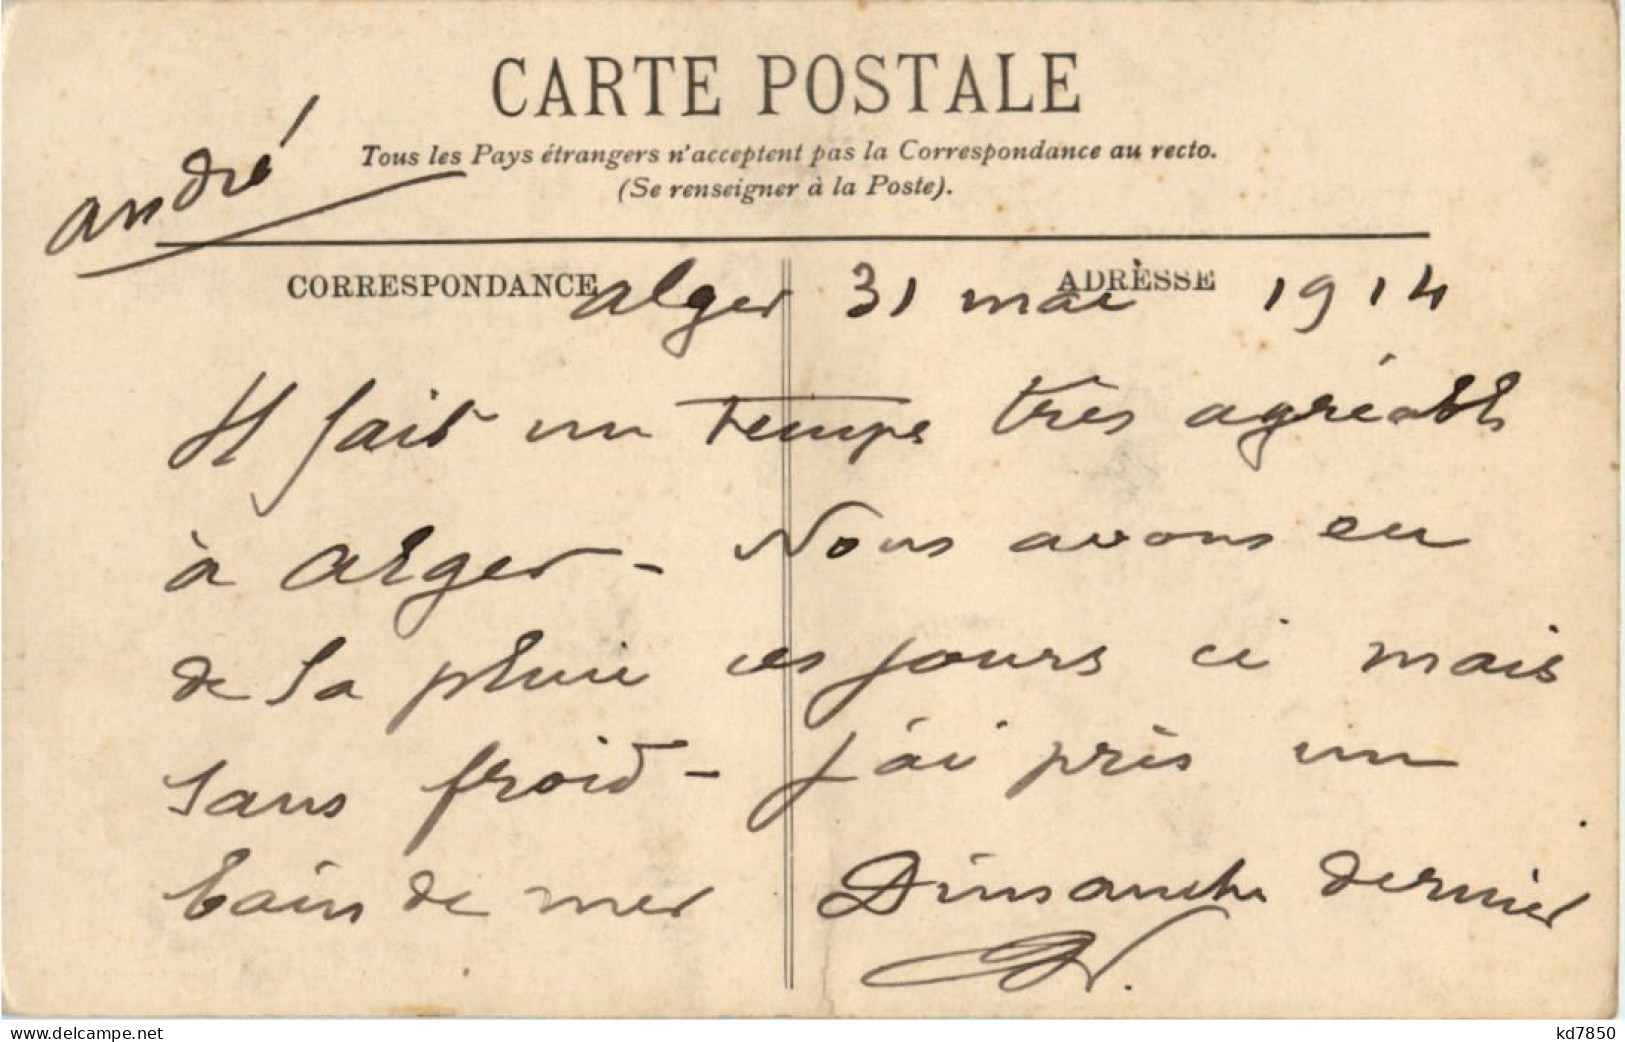 CARTE POSTALE
Tous les Pays étrangers n'acceptent pas la Correspondance au recto.
(Se renseigner à la Poste).
andré
CORRESPONDANCE
ADRESSE
alger 31 mai 1914
Il fait un temps très agréable
à alger - Nous avons eu
de la pluie ces jours ci mais
sans froid - j'ai pris un
bain de mer Dimanche dernier
www.delcampe.net
kd7850